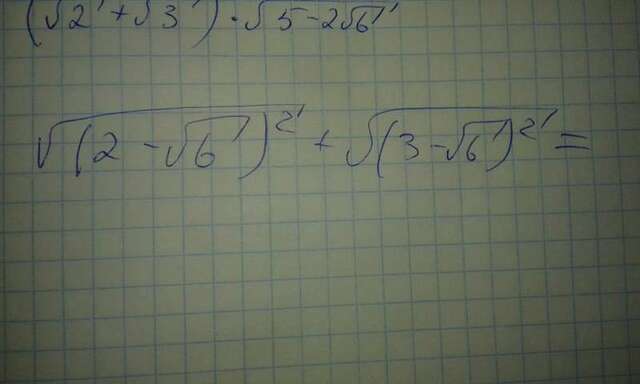 (√2 + √3) · √5 - 2√6
√(2 - √6)² + √(3 - √6)² =